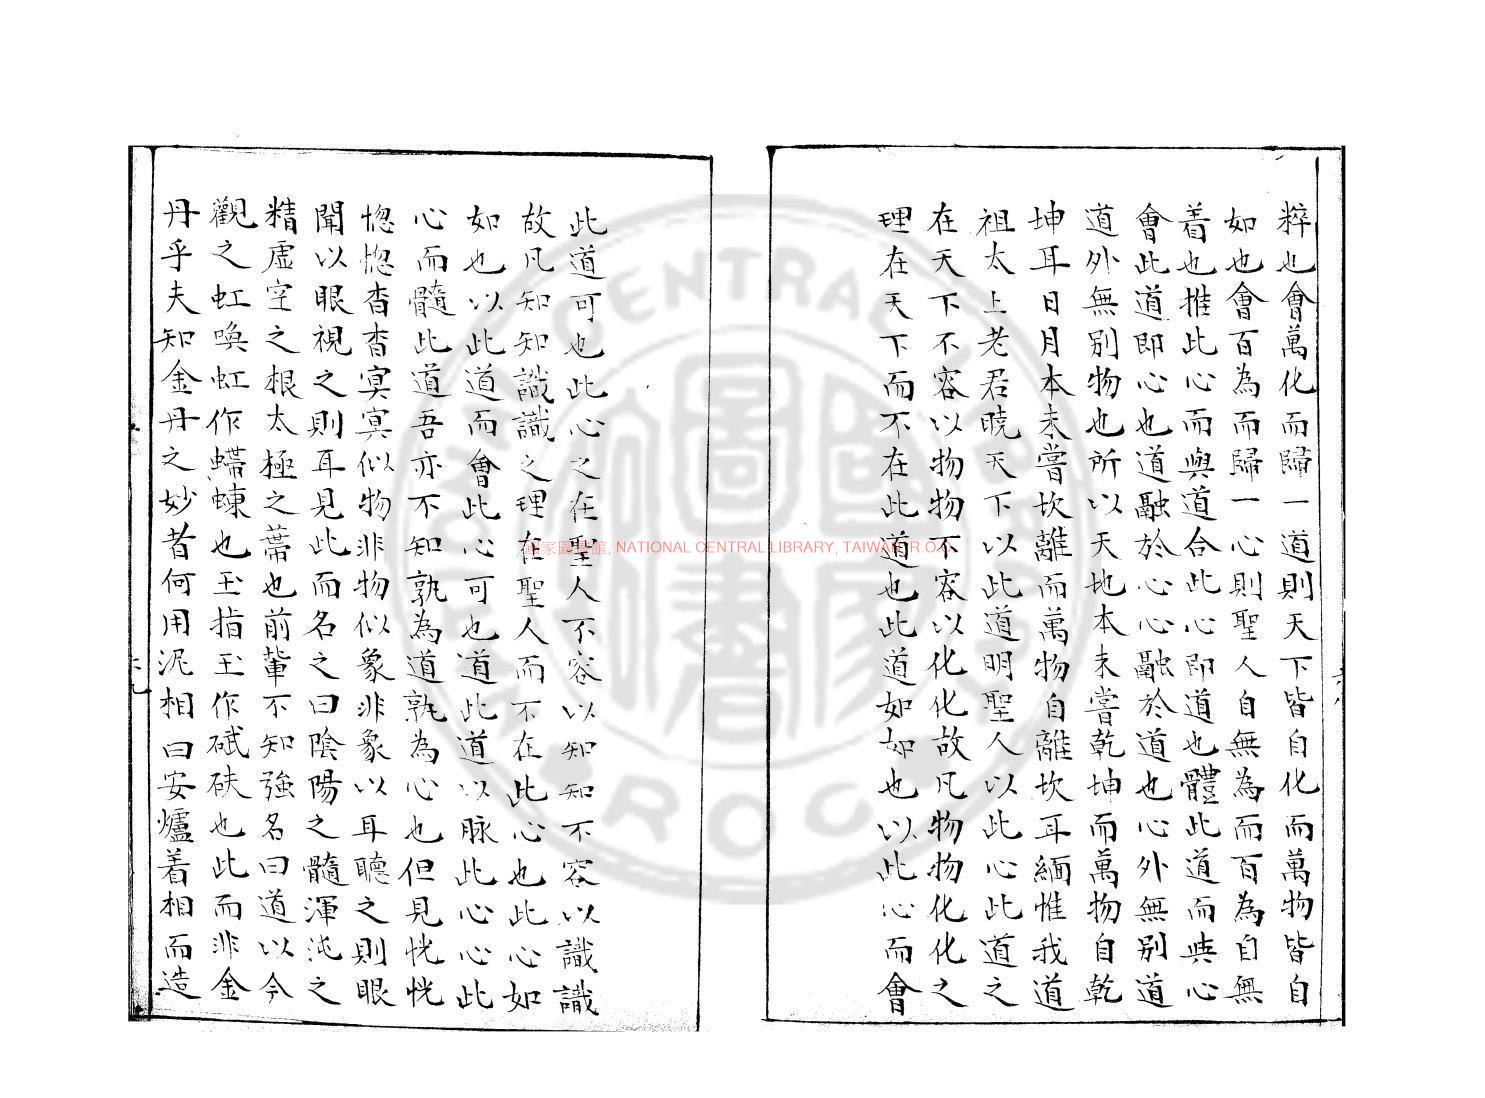 粹也會萬化而歸一道則天下皆自化而萬物皆自
如也會百為而歸一心則聖人自無為而百為自無
着也推此心而與道合此心即道也體此道而與心
會此道即心也道融於心心融於道也心外無別道
道外無別物也所以天地本未嘗乾坤而萬物自乾
坤耳日月本未嘗坎離而萬物自離坎耳緬惟我道
祖太上老君曉天下以此道明聖人以此心此道之
在天下不容以物物不容以化化故凡物物化化之
理在天下而不在此道也此道如如也以此心而會
此道可也此心之在聖人不容以知知不容以識識
故凡知知識識之理在聖人而不在此心也此心如
如也以此道而會此心可也道此道以脉此心心此
心而髓此道吾亦不知孰為道孰為心也但見恍恍
惚惚杳杳冥冥似物非物似象非象以耳聽之則眼
聞以眼視之則耳見此而名之曰陰陽之髓渾沌之
精虛空之根太極之蔕也前輩不知強名曰道以今
觀之虹喚虹作螮蝀也玉指玉作碔砆也此而非金
丹乎夫知金丹之妙者何用泥相曰安爐着相而造
國家圖書館, NATIONAL CENTRAL LIBRARY, TAIWAN, R.O.C